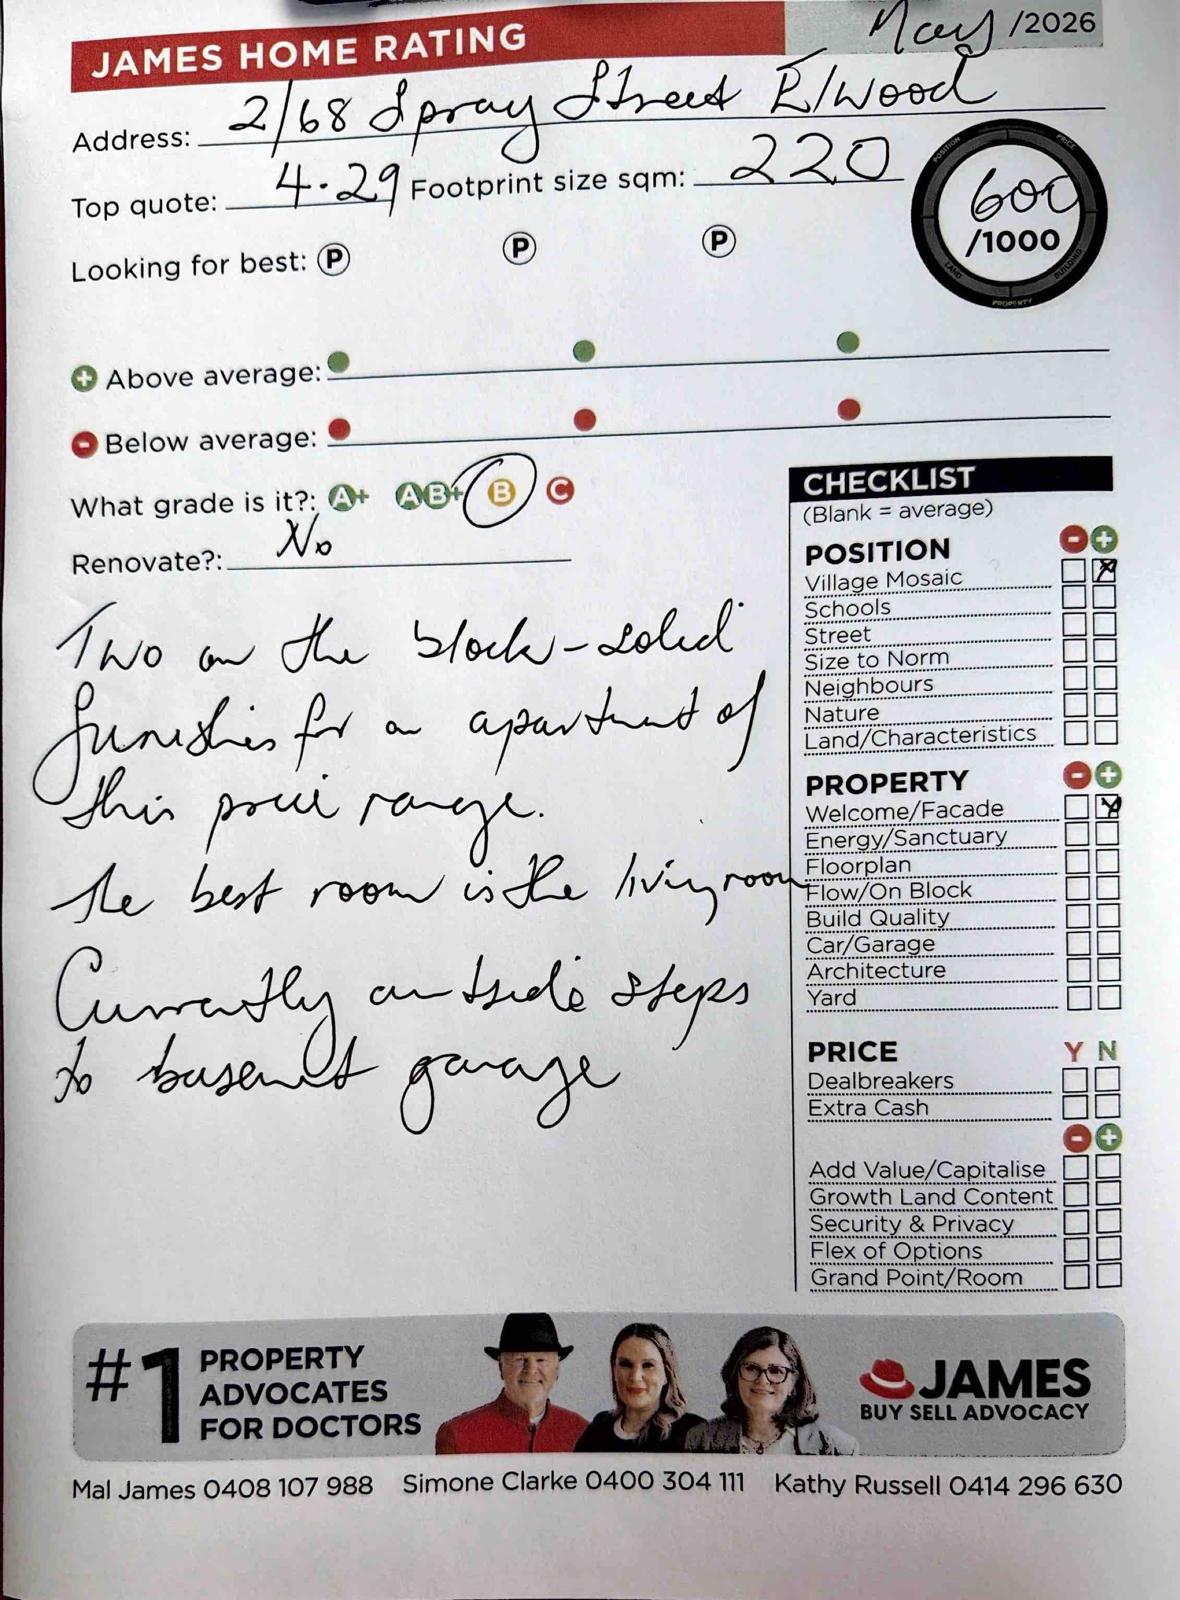 JAMES HOME RATING
May /2026
Address: 2/68 Spray Street Elwood
Top quote: 4.29 Footprint size sqm: 220
600
/1000
POSITION
PRICE
LAND
BUILDING
PROPERTY
Looking for best: P P P
+ Above average:
- Below average:
What grade is it?: A+ AB+ B C
Renovate?: No
Two on the block - solid
finishes for an apartment of
this price range.
The best room is the living room
Currently outside steps
to basement garage
CHECKLIST
(Blank = average)
POSITION - +
Village Mosaic
Schools
Street
Size to Norm
Neighbours
Nature
Land/Characteristics
PROPERTY - +
Welcome/Facade
Energy/Sanctuary
Floorplan
Flow/On Block
Build Quality
Car/Garage
Architecture
Yard
PRICE Y N
Dealbreakers
Extra Cash
- +
Add Value/Capitalise
Growth Land Content
Security & Privacy
Flex of Options
Grand Point/Room
#1 PROPERTY
ADVOCATES
FOR DOCTORS
JAMES
BUY SELL ADVOCACY
Mal James 0408 107 988 Simone Clarke 0400 304 111 Kathy Russell 0414 296 630